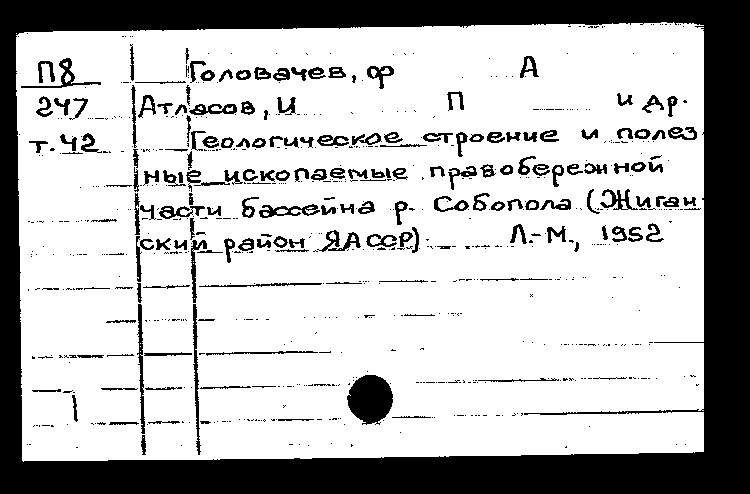 П8 Головачев, Ф А
247 Атласов, И П и др.
т.42 Геологическое строение и полез
ные ископаемые правобережной
части бассейна р. Собопола (Жиган-
ский район ЯАССР) Л.-М., 1952